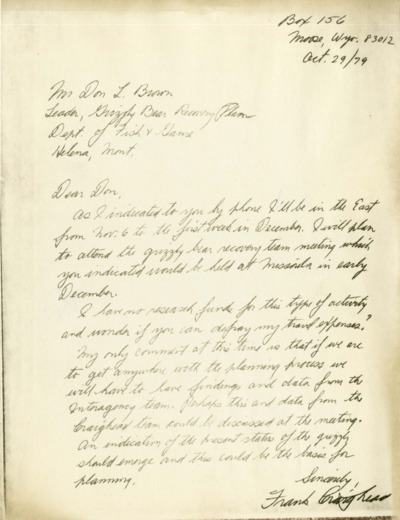 Box 156
Moose, Wyo. 83012
Oct. 29/79
Mr Don L. Brown
Leader, Grizzly Bear Recovery Plan
Dept. of Fish & Game
Helena, Mont.
Dear Don,
As I indicated to you by phone I'll be in the East
from Nov. 6 to the first week in December. I will plan
to attend the grizzly bear recovery team meeting which
you indicated would be held at Missoula in early
December.
I have no research funds for this type of activity
and wonder if you can defray my travel expenses?
My only comment at this time is that if we are
to get anywhere with the planning process we
will have to have findings and data from the
Interagency team. Perhaps this and data from the
Craighead team could be discussed at the meeting.
An indication of the present status of the grizzly
should emerge and this could be the basis for
planning.
Sincerely
Frank Craighead